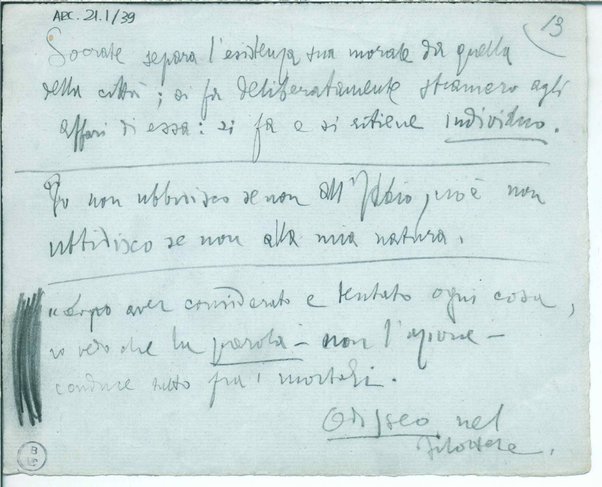 ARC. 21.1/39
13
Socrate separa l'esistenza sua morale da quella
della città; si fa deliberatamente straniero agli
affari di essa: si fa e si ritiene individuo.
Io non ubbidisco se non all'Iddio, cioè non
ubbidisco se non alla mia natura.
"Dopo aver considerato e tentato ogni cosa,
io vedo che la parola – non l'azione –
conduce tutto fra i mortali.
Odisseo nel
Filottete.
B
LP